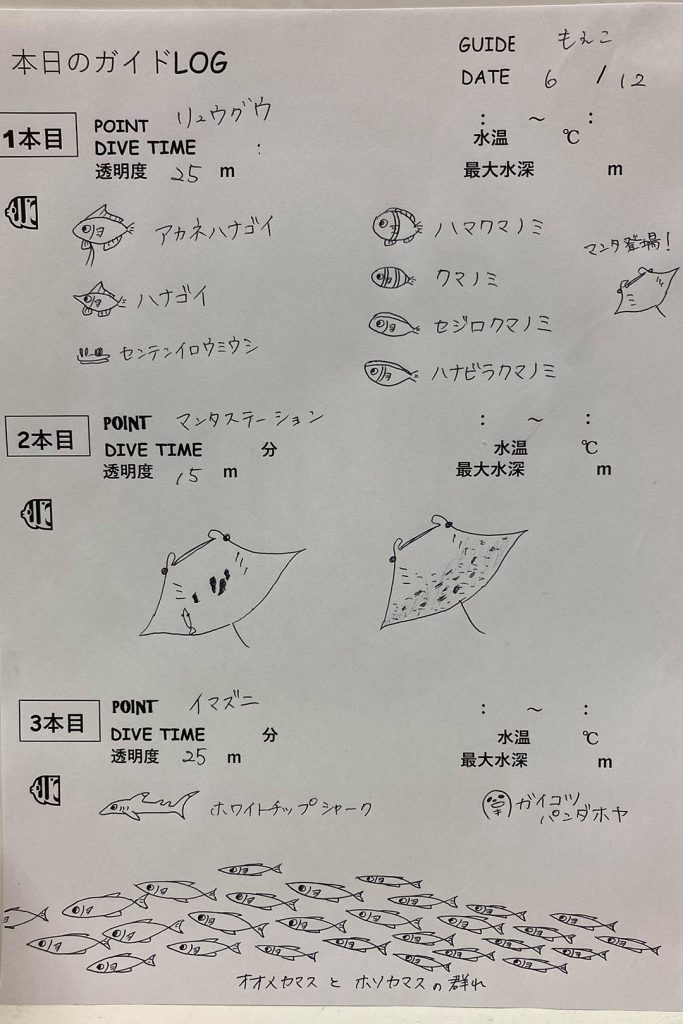 本日のガイドLOG
GUIDE もえこ
DATE 6/12
1本目
POINT リュウグウ
DIVE TIME :
透明度 25 m
: ～ :
水温 ℃
最大水深 m
アカネハナゴイ
ハナゴイ
センテンイロウミウシ
ハマクマノミ
クマノミ
セジロクマノミ
ハナビラクマノミ
マンタ登場!
2本目
POINT マンタステーション
DIVE TIME 分
透明度 15 m
: ～ :
水温 ℃
最大水深 m
3本目
POINT イマズニ
DIVE TIME 分
透明度 25 m
: ～ :
水温 ℃
最大水深 m
ホワイトチップシャーク
ガイコツ
パンダホヤ
オオメカマスとホソカマスの群れ